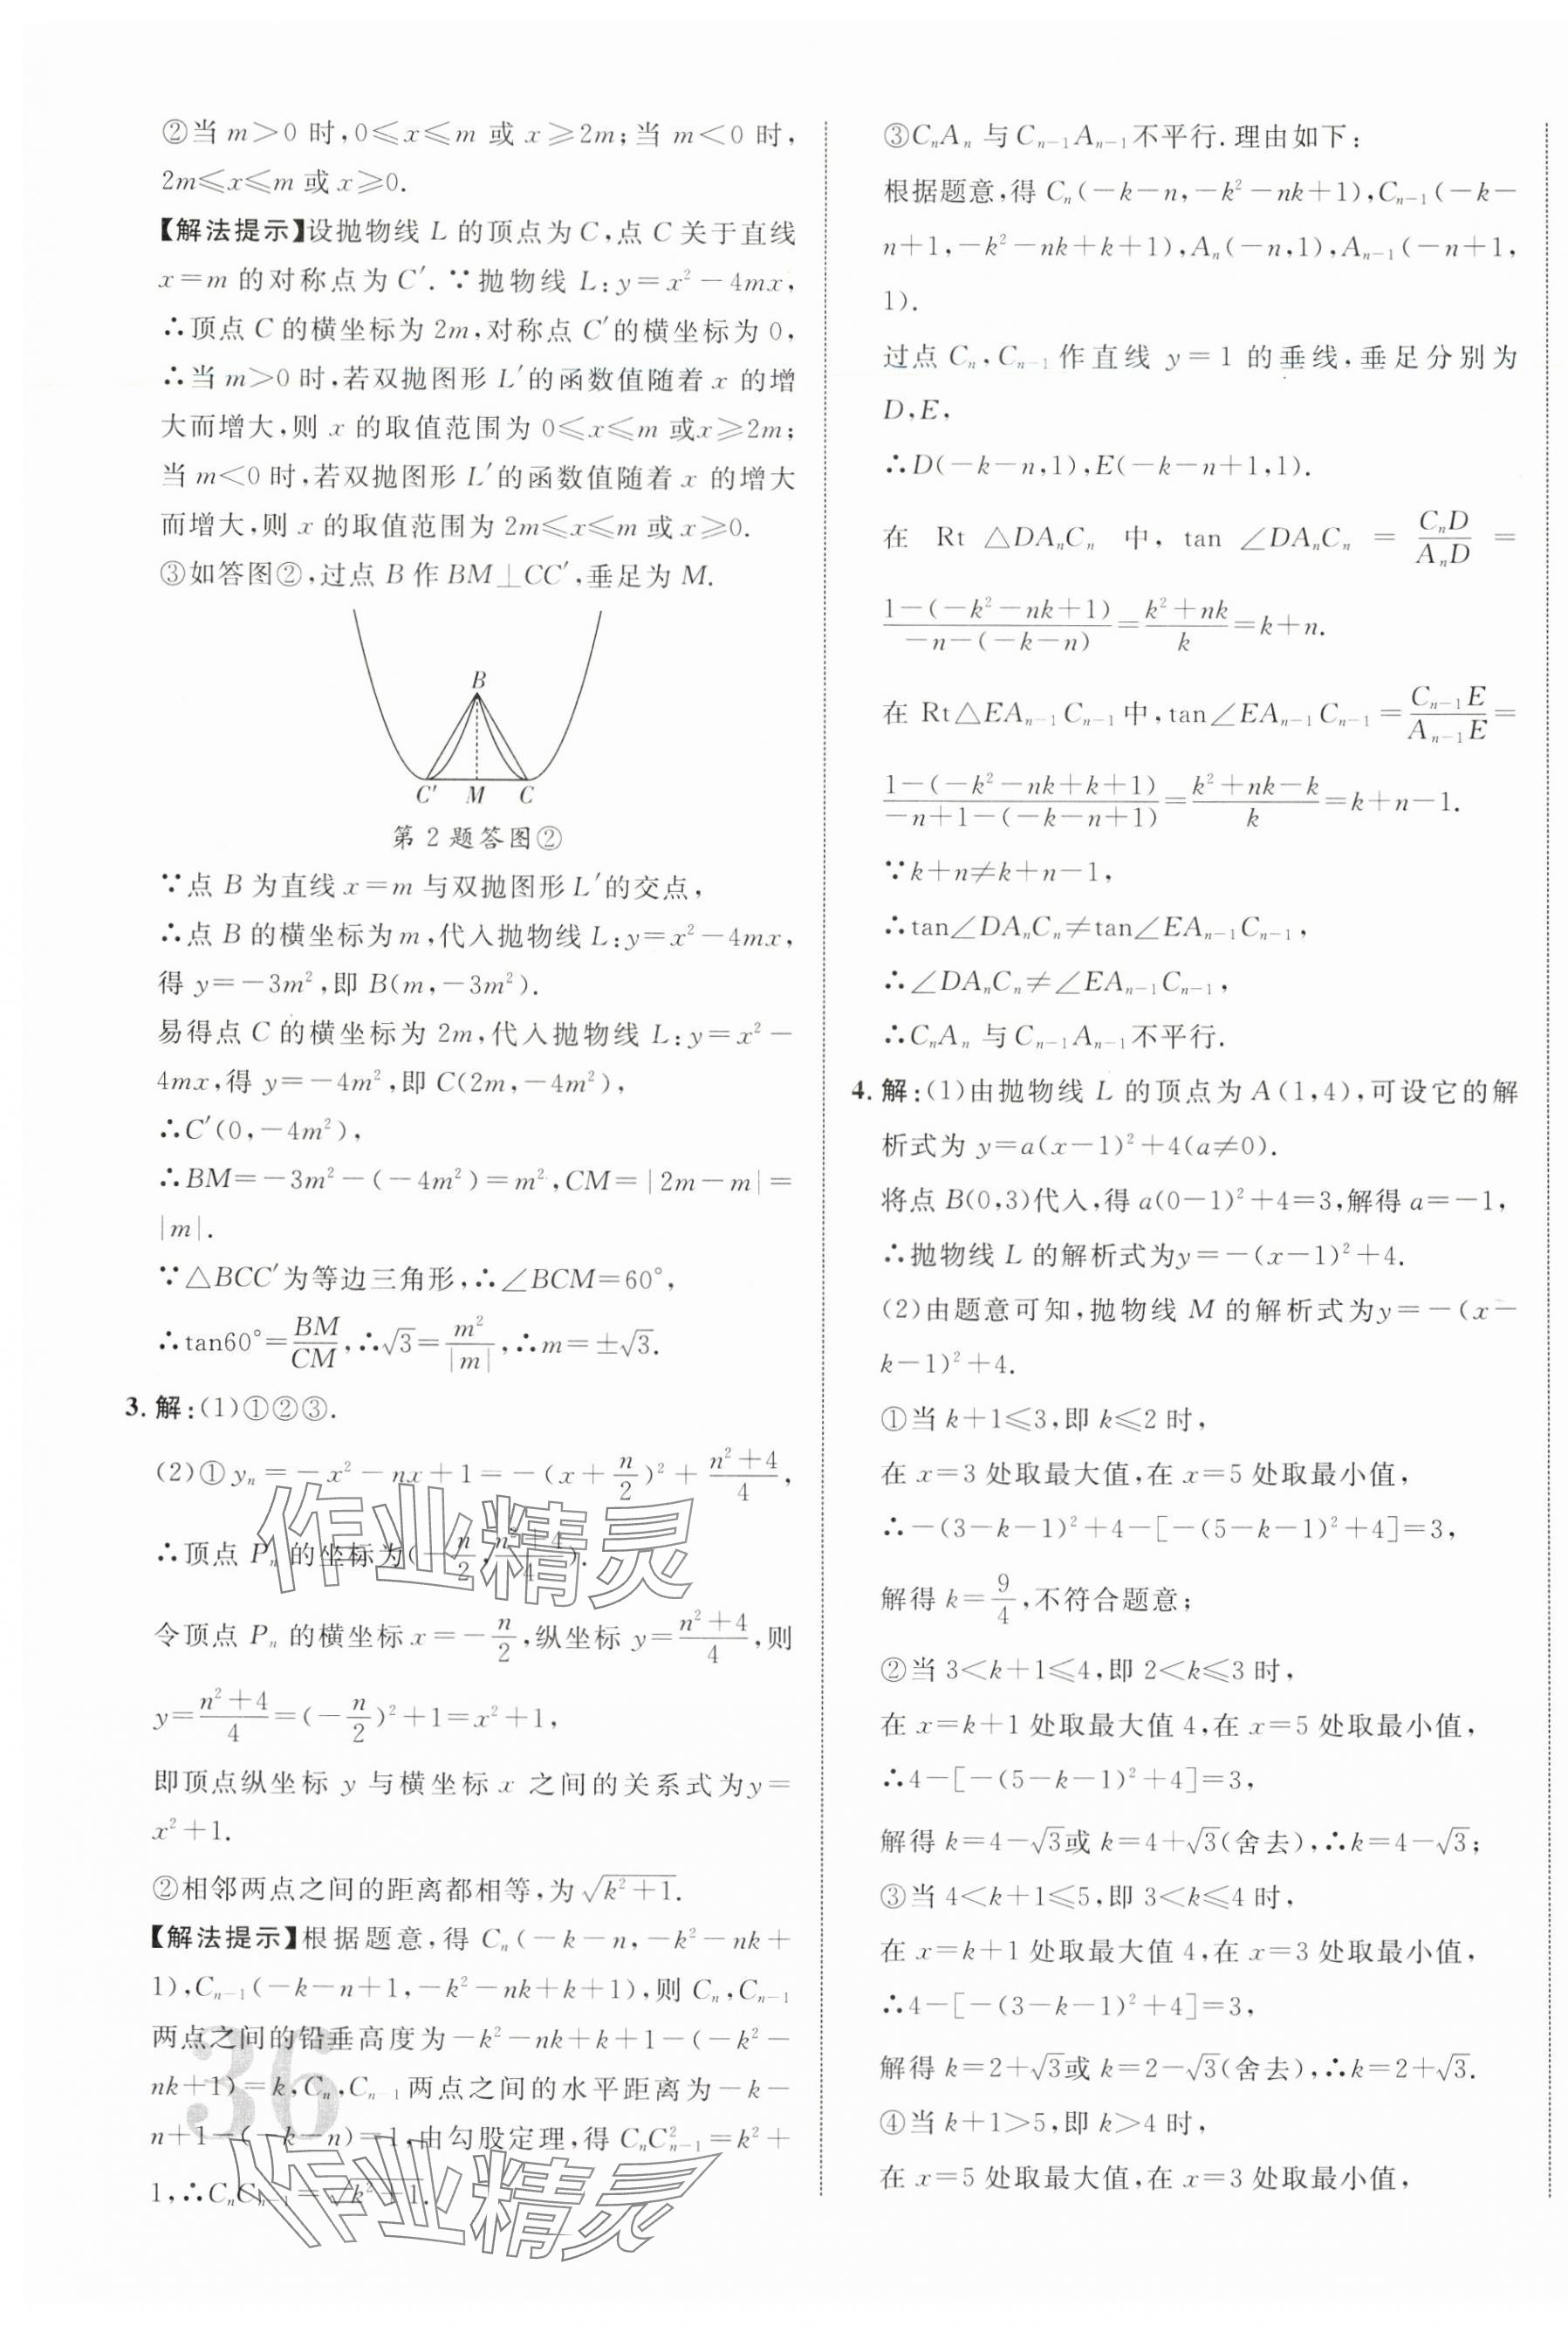 ②当 m>0 时,0≤x≤m 或 x≥2m;当 m<0 时,
2m≤x≤m 或 x≥0.
【解法提示】设抛物线 L 的顶点为 C,点 C 关于直线
x=m 的对称点为 C′.∵抛物线 L:y=x²-4mx,
∴顶点 C 的横坐标为 2m,对称点 C′的横坐标为 0,
∴当 m>0 时,若双抛图形 L′的函数值随着 x 的增
大而增大,则 x 的取值范围为 0≤x≤m 或x≥2m;
当 m<0 时,若双抛图形 L′的函数值随着 x 的增大
而增大,则 x 的取值范围为 2m≤x≤m 或 x≥0.
③如答图②,过点 B 作 BM⊥CC′,垂足为 M.
B
C′ M C
第 2 题答图②
∵点 B 为直线 x=m 与双抛图形 L′的交点,
∴点 B 的横坐标为 m,代入抛物线 L:y=x²-4mx,
得 y=-3m²,即 B(m,-3m²).
易得点 C 的横坐标为 2m,代入抛物线 L:y=x²-
4mx,得 y=-4m²,即 C(2m,-4m²),
∴C′(0,-4m²),
∴BM=-3m²-(-4m²)=m²,CM=|2m-m|=
|m|.
∵△BCC′为等边三角形,∴∠BCM=60°,
∴tan60°=BM/CM,∴√3=m²/|m|,∴m=±√3.
3. 解:(1)①②③.
(2)①yₙ=-x²-nx+1=-(x+n/2)²+(n²+4)/4,
∴顶点 Pₙ 的坐标为(-n/2,(n²+4)/4).
令顶点 Pₙ 的横坐标 x=-n/2,纵坐标 y=(n²+4)/4,则
y=(n²+4)/4=(-n/2)²+1=x²+1,
即顶点纵坐标 y 与横坐标 x 之间的关系式为y=
x²+1.
②相邻两点之间的距离都相等,为√(k²+1).
【解法提示】根据题意,得 Cₙ(-k-n,-k²-nk+
1),Cₙ₋₁(-k-n+1,-k²-nk+k+1),则 Cₙ,Cₙ₋₁
两点之间的铅垂高度为-k²-nk+k+1-(-k²-
nk+1)=k,Cₙ,Cₙ₋₁两点之间的水平距离为-k-
n+1-(-k-n)=1,由勾股定理,得 CₙC²ₙ₋₁=k²+
1,∴CₙCₙ₋₁=√(k²+1).
③CₙAₙ 与 Cₙ₋₁Aₙ₋₁不平行.理由如下:
根据题意,得 Cₙ(-k-n,-k²-nk+1),Cₙ₋₁(-k-
n+1,-k²-nk+k+1),Aₙ(-n,1),Aₙ₋₁(-n+1,
1).
过点 Cₙ,Cₙ₋₁作直线 y=1 的垂线,垂足分别为
D,E,
∴D(-k-n,1),E(-k-n+1,1).
在 Rt △DAₙCₙ 中, tan ∠DAₙCₙ = CₙD/AₙD =
(1-(-k²-nk+1))/(-n-(-k-n))=(k²+nk)/k=k+n.
在 Rt△EAₙ₋₁Cₙ₋₁中,tan∠EAₙ₋₁Cₙ₋₁=Cₙ₋₁E/Aₙ₋₁E=
(1-(-k²-nk+k+1))/(-n+1-(-k-n+1))=(k²+nk-k)/k=k+n-1.
∵k+n≠k+n-1,
∴tan∠DAₙCₙ≠tan∠EAₙ₋₁Cₙ₋₁,
∴∠DAₙCₙ≠∠EAₙ₋₁Cₙ₋₁,
∴CₙAₙ 与 Cₙ₋₁Aₙ₋₁不平行.
4. 解:(1)由抛物线 L 的顶点为 A(1,4),可设它的解
析式为 y=a(x-1)²+4(a≠0).
将点 B(0,3)代入,得 a(0-1)²+4=3,解得 a=-1,
∴抛物线 L 的解析式为y=-(x-1)²+4.
(2)由题意可知,抛物线 M 的解析式为y=-(x-
k-1)²+4.
①当 k+1≤3,即 k≤2 时,
在 x=3 处取最大值,在 x=5 处取最小值,
∴-(3-k-1)²+4-[-(5-k-1)²+4]=3,
解得 k=9/4,不符合题意;
②当 3<k+1≤4,即 2<k≤3 时,
在 x=k+1 处取最大值 4,在 x=5 处取最小值,
∴4-[-(5-k-1)²+4]=3,
解得 k=4-√3或 k=4+√3(舍去),∴k=4-√3;
③当 4<k+1≤5,即 3<k≤4 时,
在 x=k+1 处取最大值 4,在 x=3 处取最小值,
∴4-[-(3-k-1)²+4]=3,
解得 k=2+√3或 k=2-√3(舍去),∴k=2+√3.
④当 k+1>5,即 k>4 时,
在 x=5 处取最大值,在 x=3 处取最小值,
36
作业精灵
作业精灵